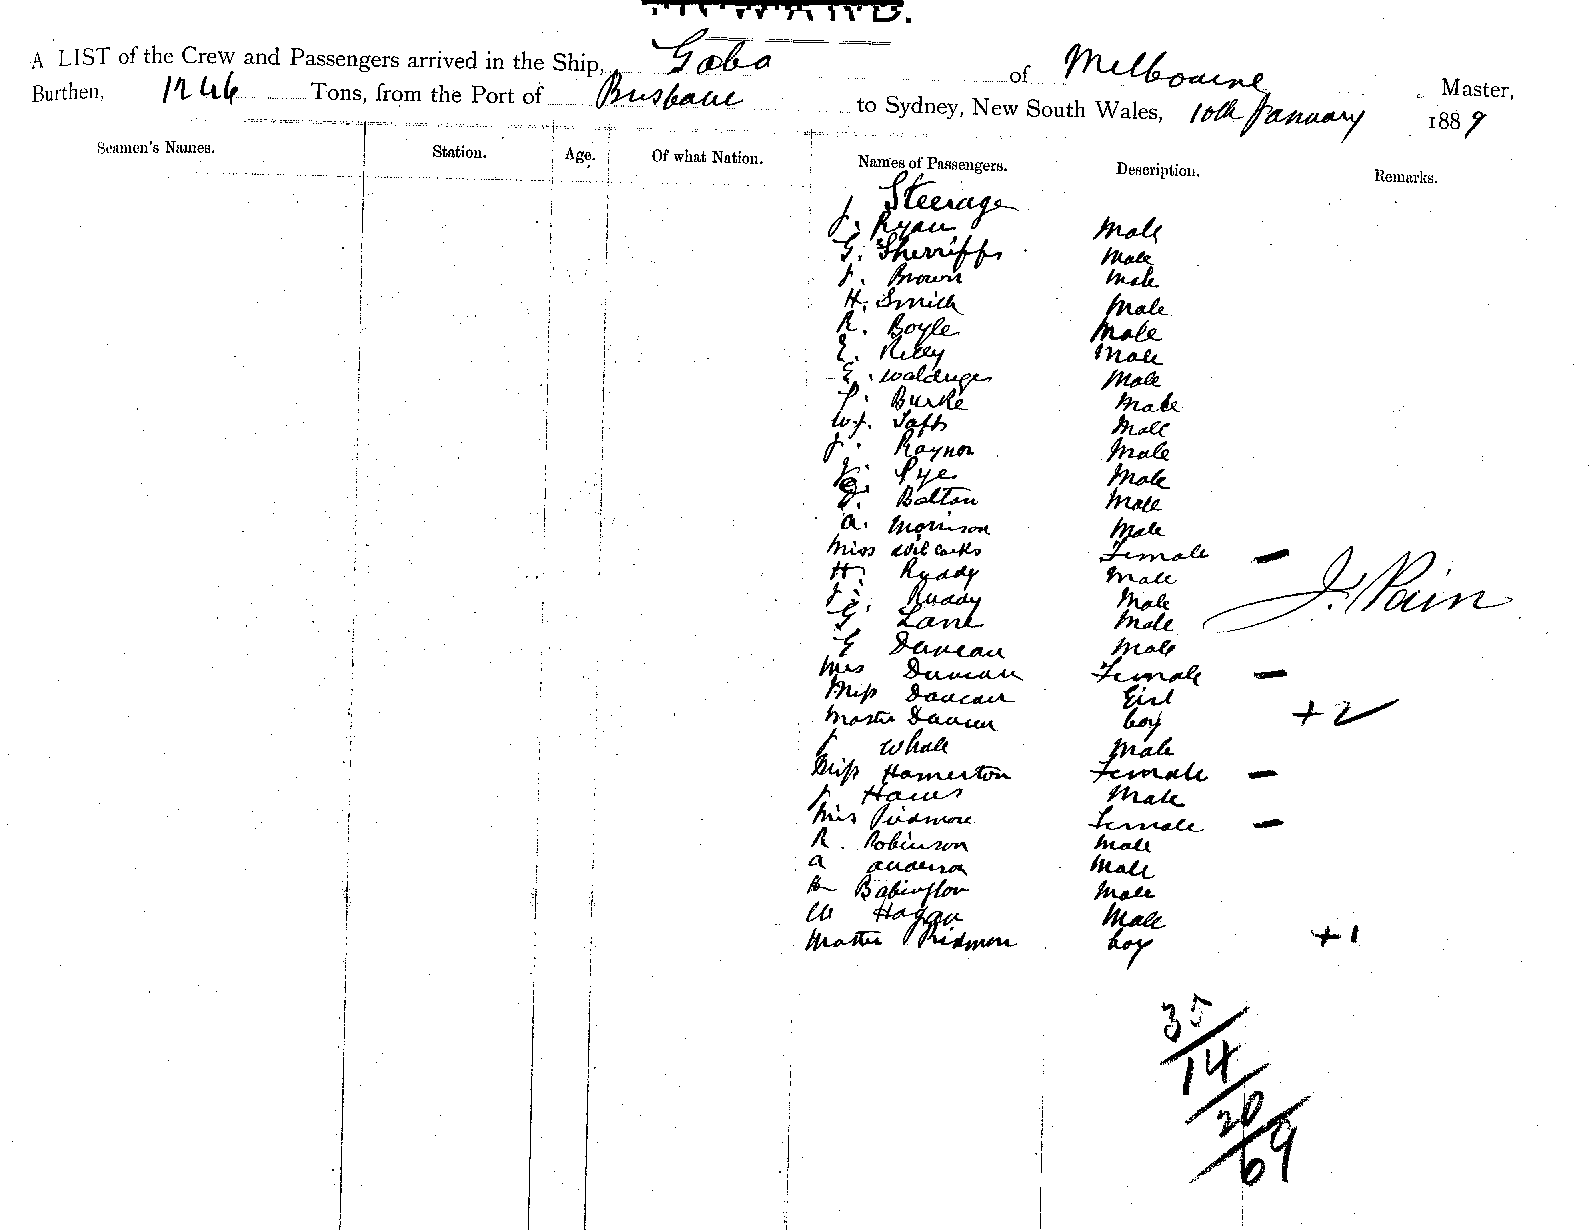 A LIST of the Crew and Passengers arrived in the Ship, Gabo of Melbourne Master,
Burthen, 1246 Tons, from the Port of Brisbane to Sydney, New South Wales, 10th January 1889
Seamen's Names. Station. Age. Of what Nation. Names of Passengers. Description. Remarks.
Steerage
J. Ryan Male
G. Sherriffs Male
J. Brown Male
H. Smith Male
R. Boyle Male
E. Riley Male
E. Male
P. Burke Male
W.J. Taft Male
J. Raynor Male
J. Pye Male
Bolton Male
A. Morrison Male
Miss Female –
H. Ruddy Male
J. Ruddy Male
J. Pain
G. Lane Male
G Duncan Male
Mrs Duncan Female –
Miss Duncan Girl
Master Duncan boy +2
J Whale Male
Miss Hamerton Female –
J Male
Mrs Pridmore Female –
R. Robinson Male
A Anderson Male
H Babington Male
W Hogan Male
Master Pridmore boy +1
35
14
20
69